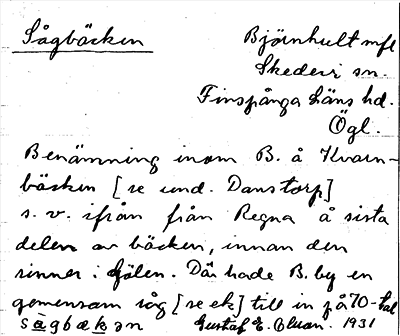 Sågbäcken
Björnhult mfl
Skedevi sn.
Finspånga läns hd.
Ögl.
Benämning inom B. å Kvarn-
bäcken [se und. Danstorp]
s. v. ifrån från Regna å sista
delen av bäcken, innan den
rinner i Gölen. Där hade B. by en
gemensam såg [se ek] till in på 70-tal
sågbækən Gustaf E. Olsson. 1931